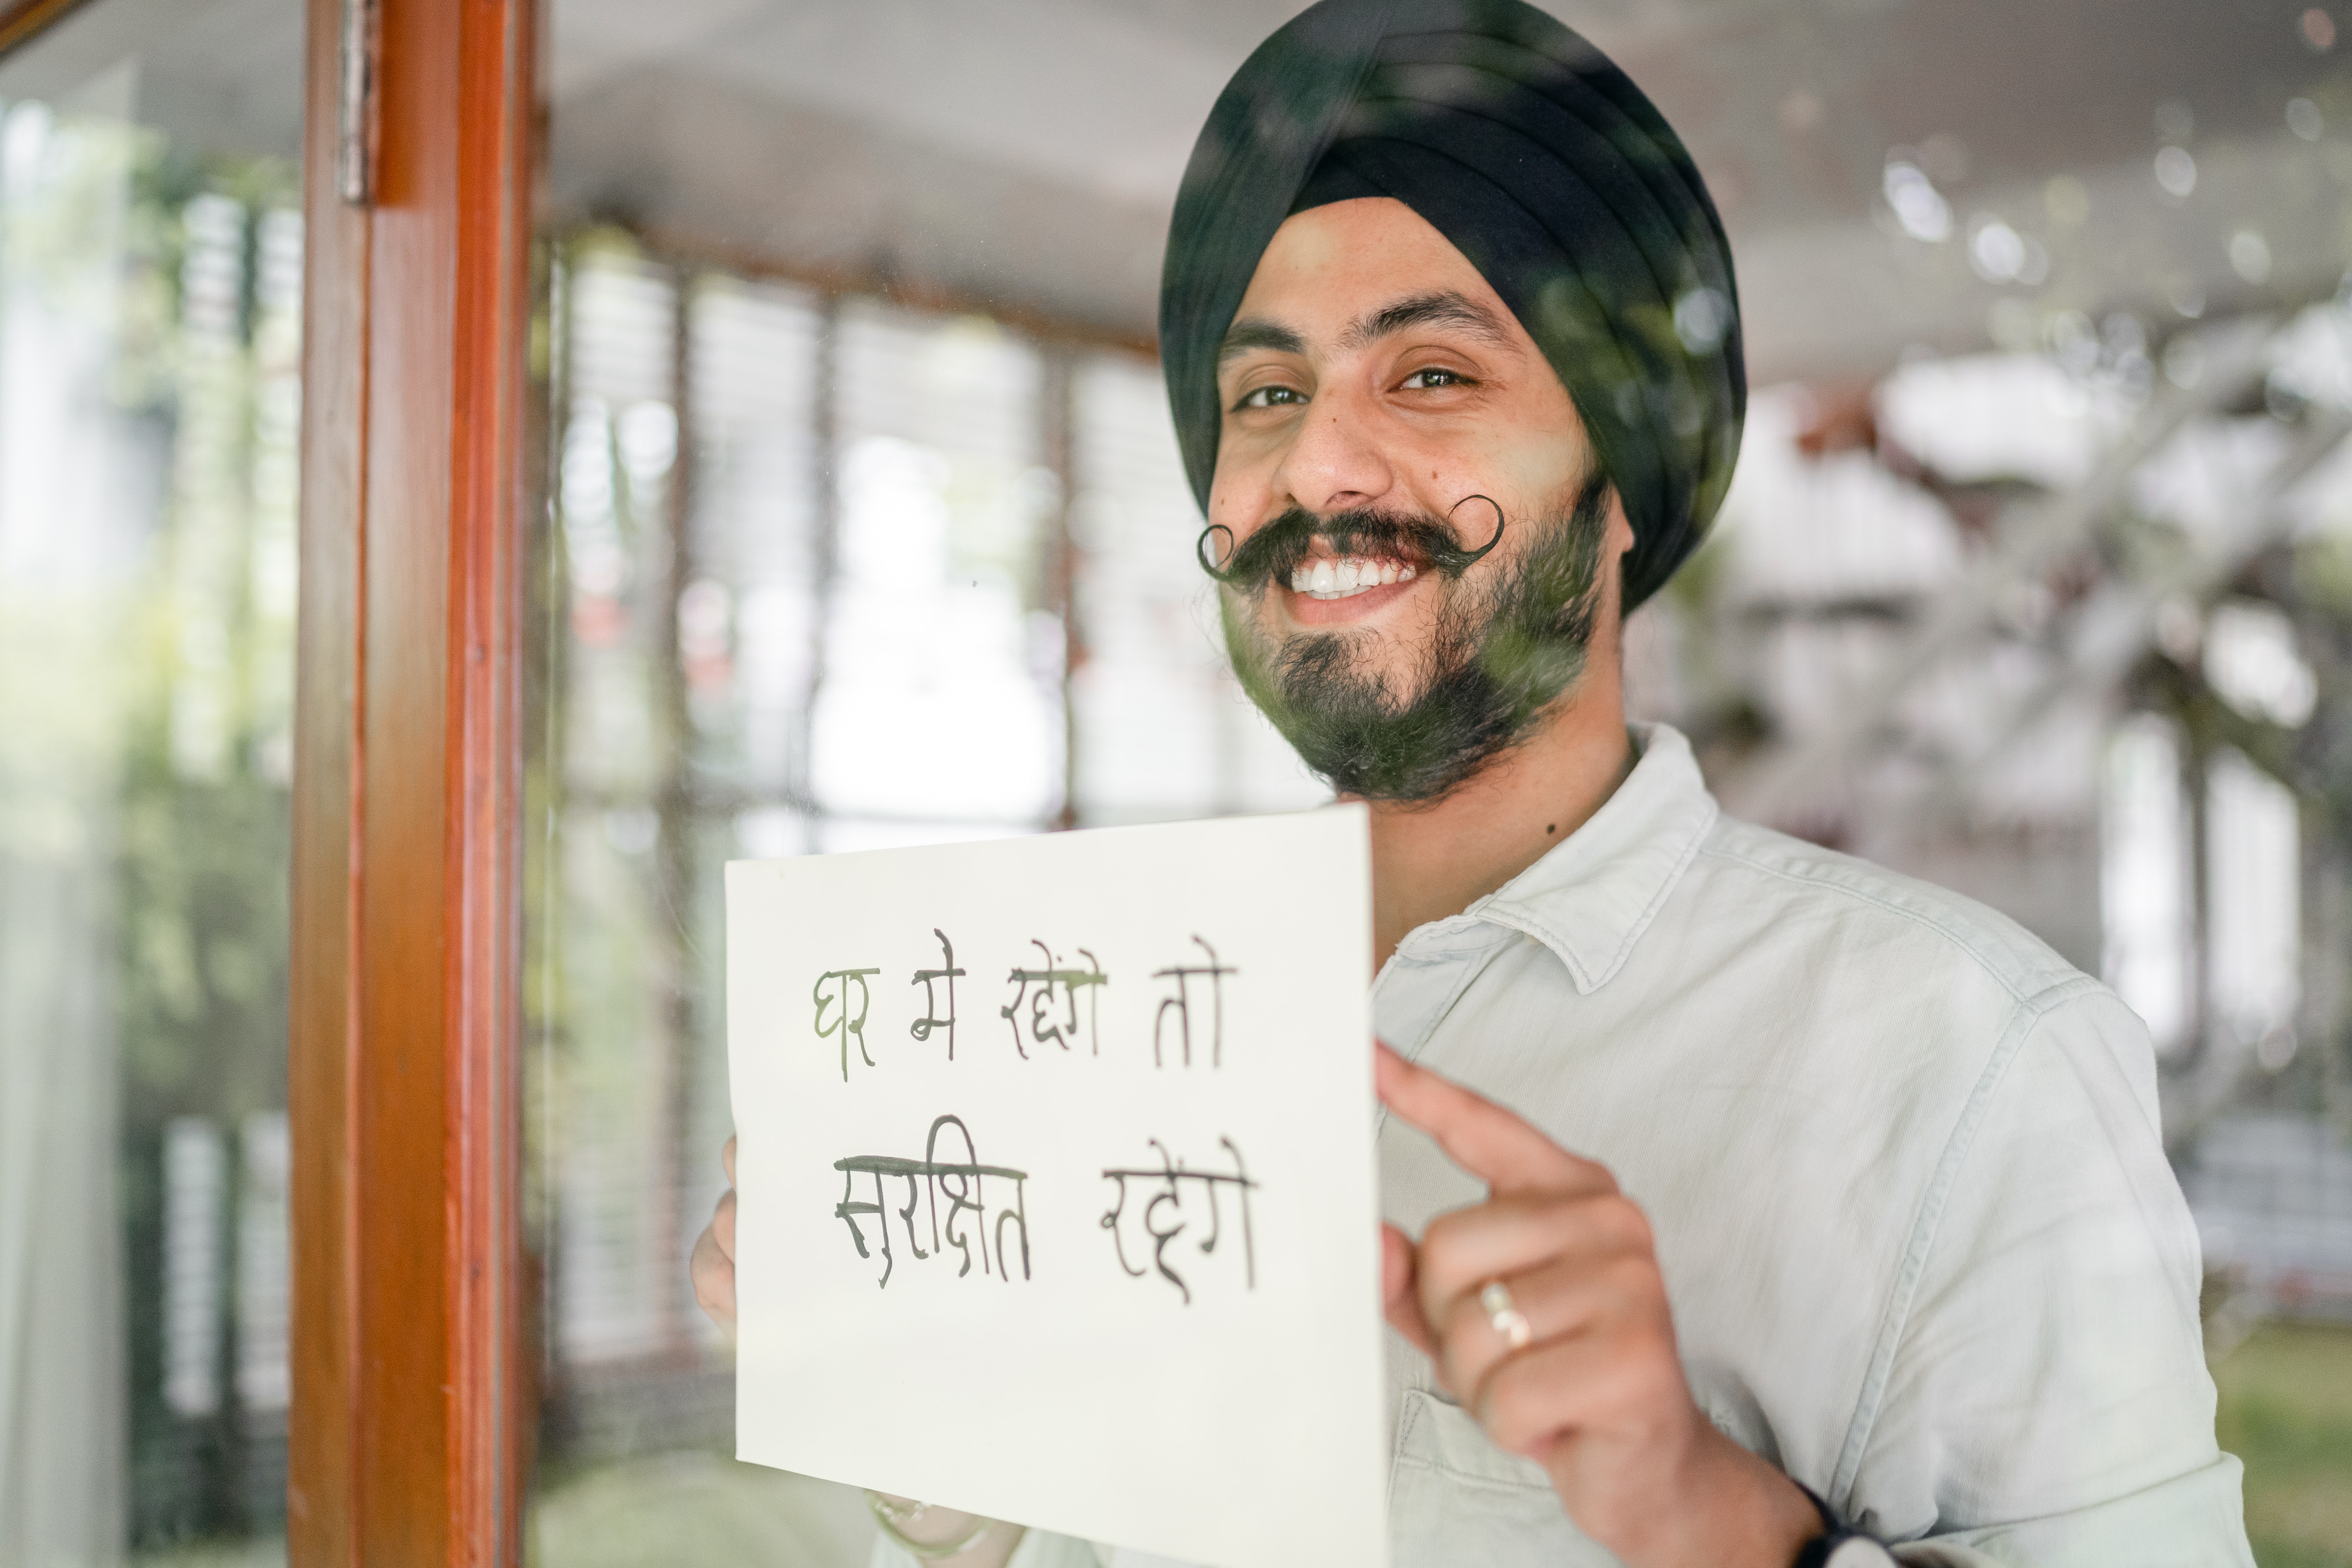 घर मे रहेंगे तो
सुरक्षित रहेंगे